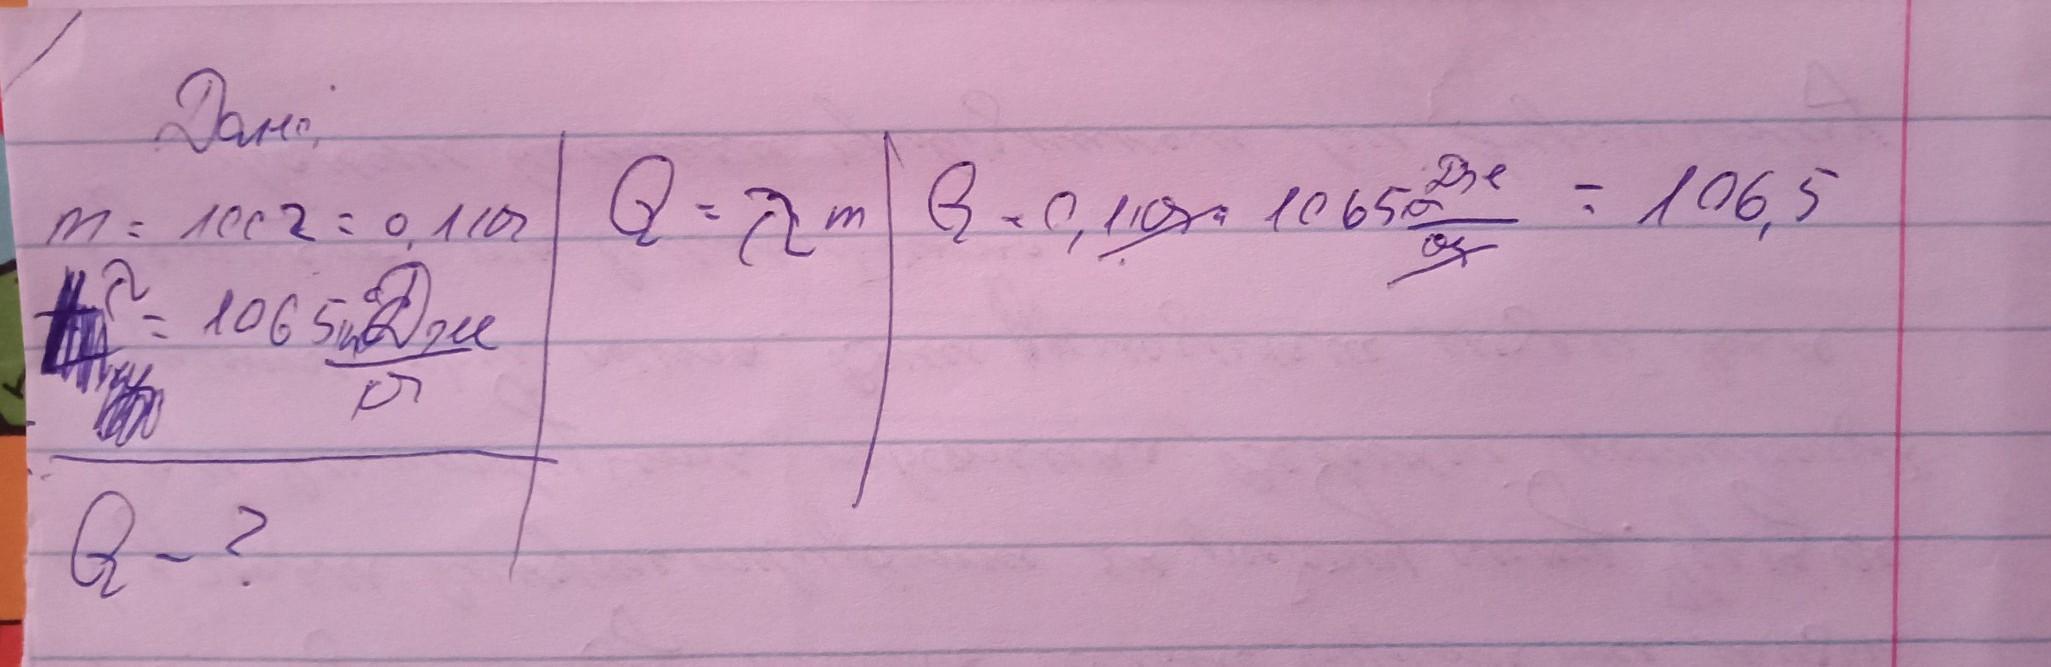 Дано:
m = 100г = 0,1 кг
λ = 1065 Дж/кг
Q - ?
Q = λm
Q = 0,1кг · 1065 Дж/кг = 106,5